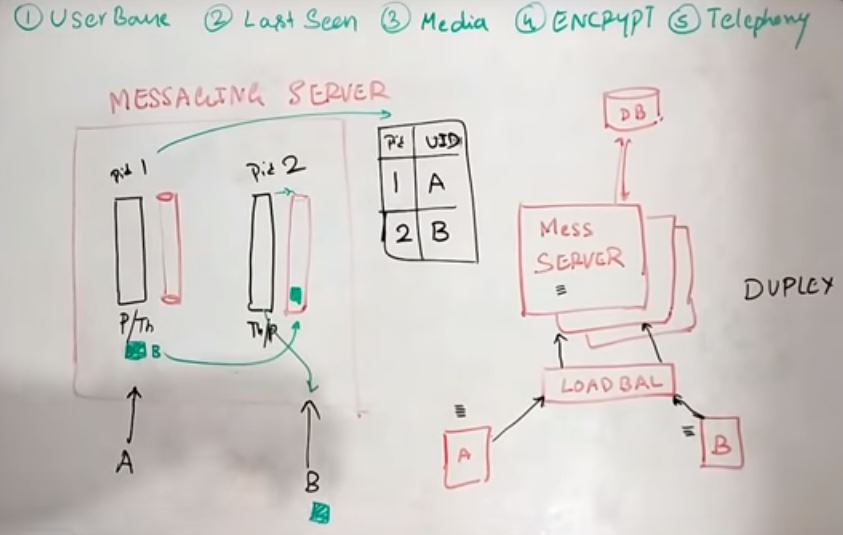 ① User Base ② Last Seen ③ Media ④ ENCRYPT ⑤ Telephony
MESSAGING SERVER
Pid 1
Pid 2
P/Th
Th/P
B
A
B
Pid UID
1 A
2 B
DB
Mess
SERVER
DUPLEX
LOAD BAL
A
B